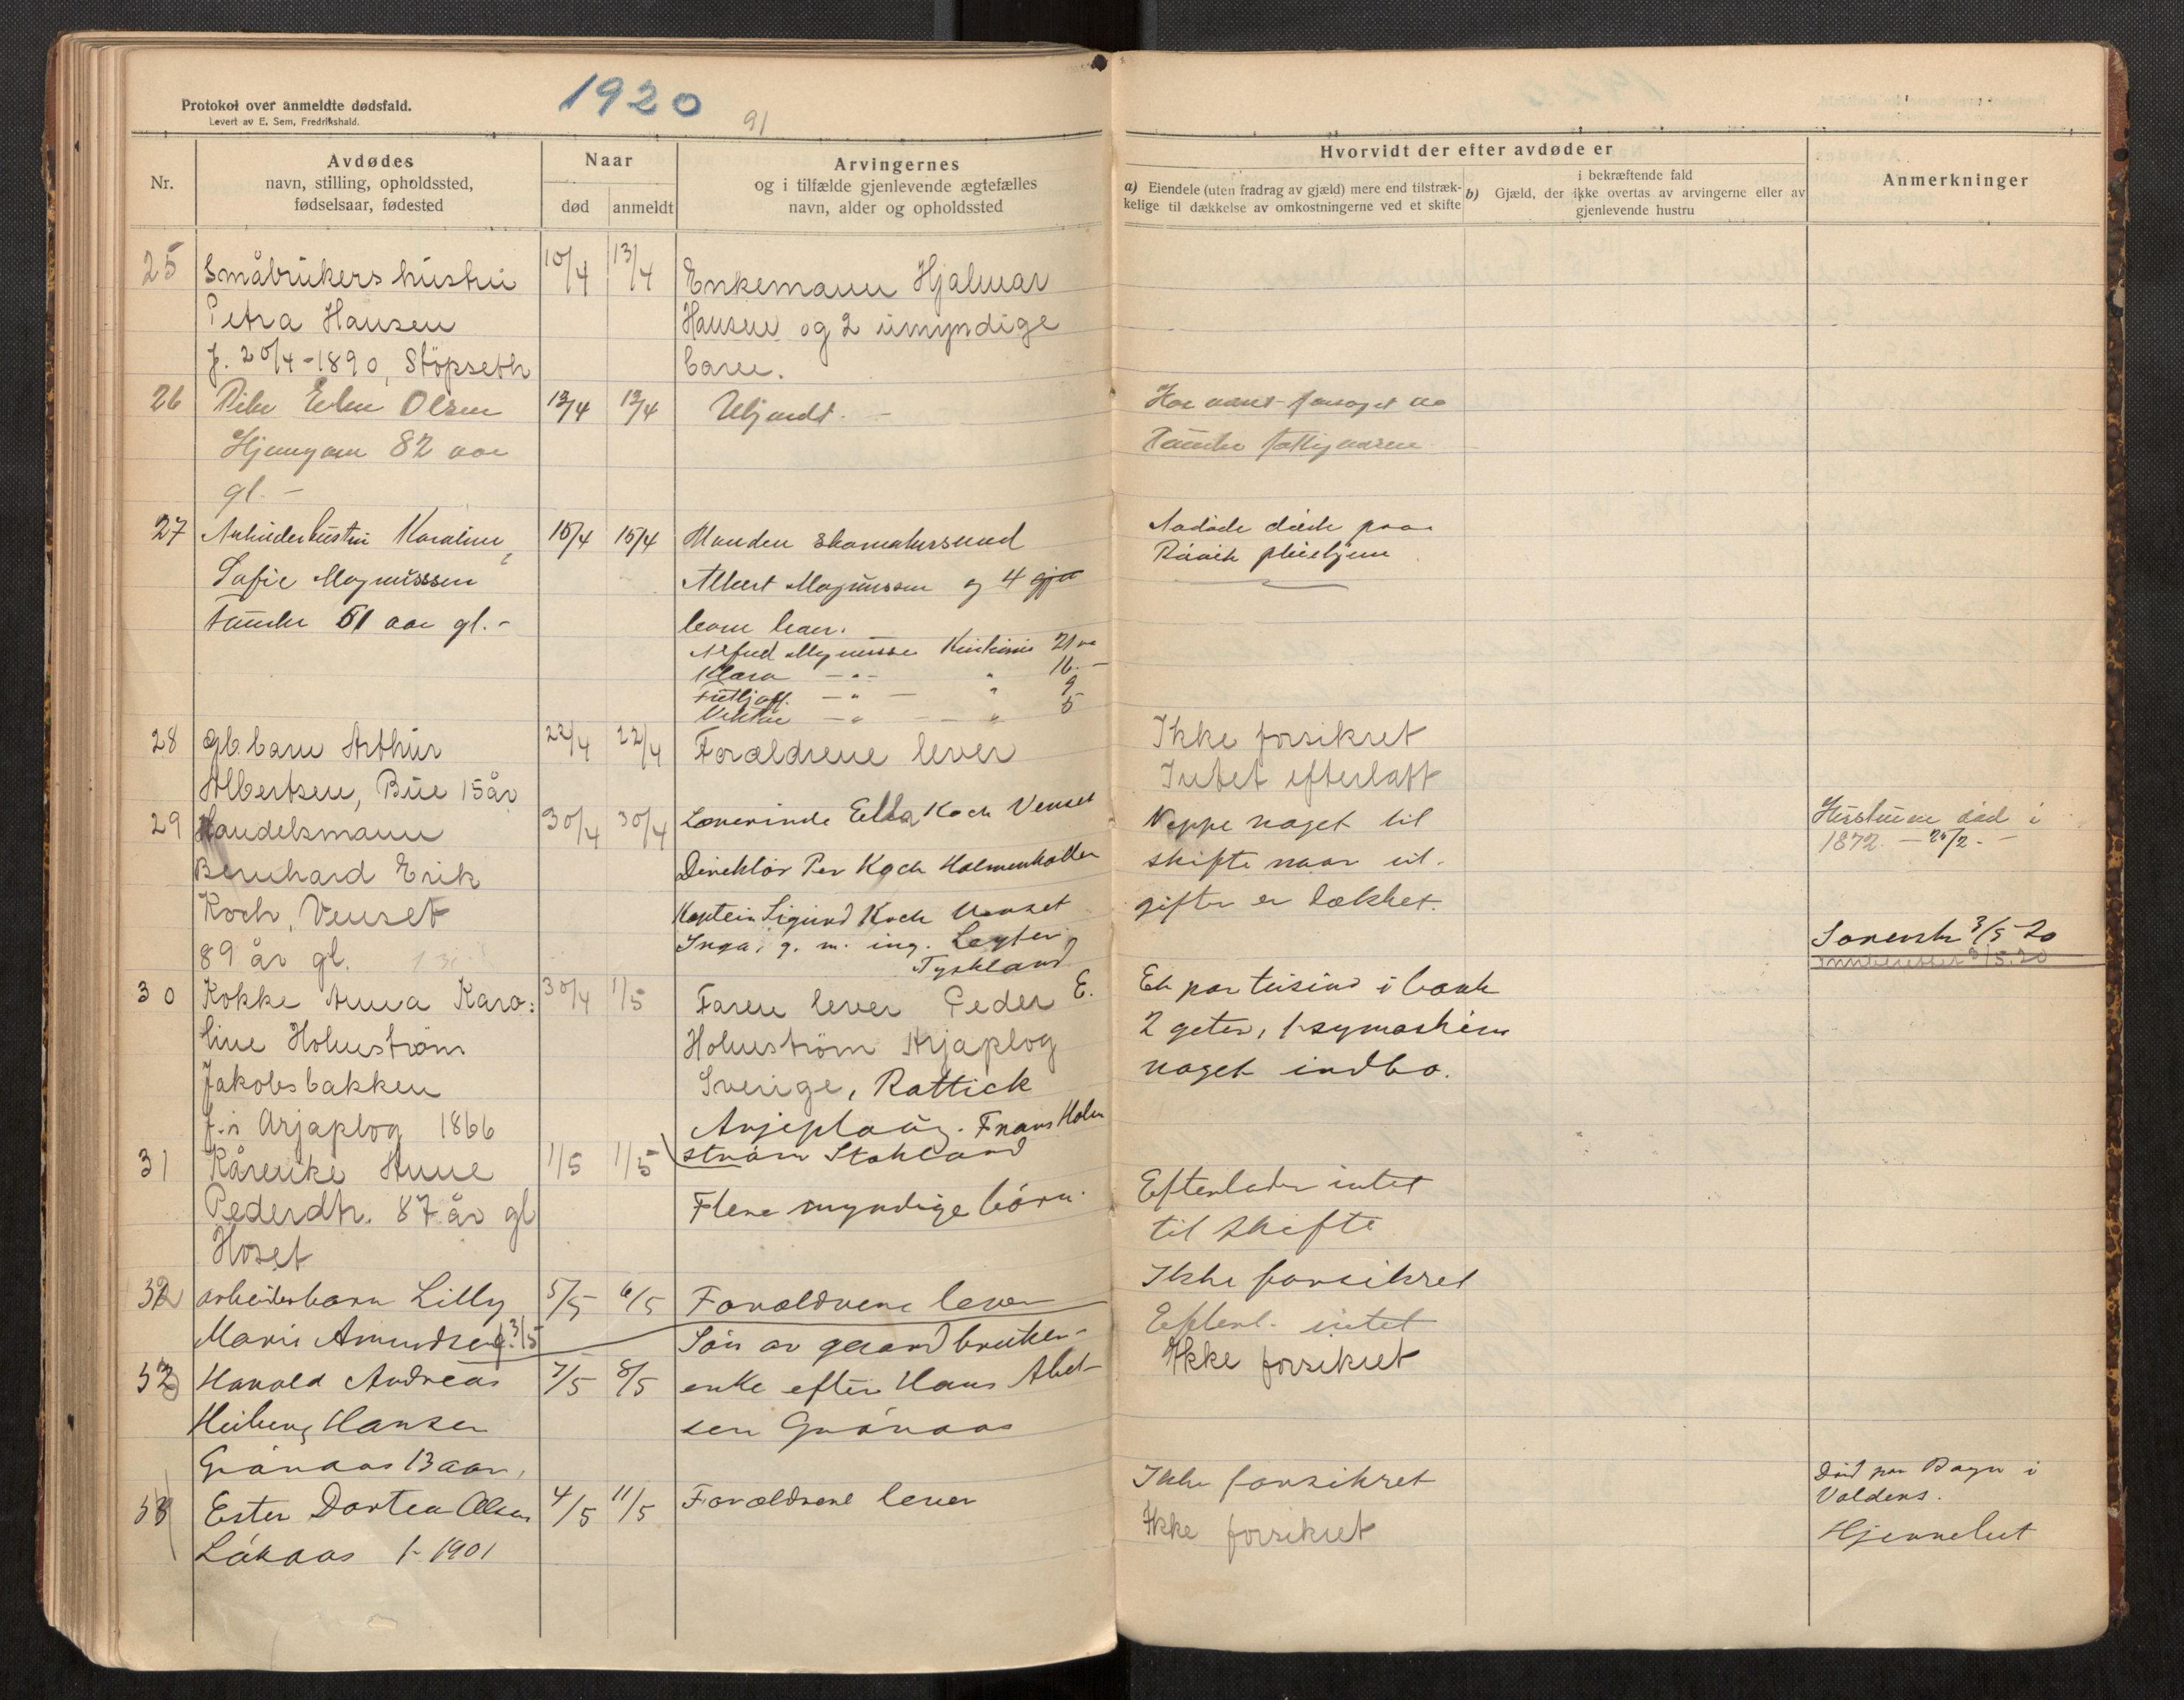 Protokol over anmeldte dødsfald.
Levert av E. Sem, Fredrikshald.
1920
91
Nr.
Avdødes
navn, stilling, opholdssted,
fødselsaar, fødested
Naar
død
anmeldt
Arvingernes
og i tilfælde gjenlevende ægtefælles
navn, alder og opholdssted
Hvorvidt der efter avdøde er
a) Eiendele (uten fradrag av gjæld) mere end tilstræk-
kelige til dækkelse av omkostningerne ved et skifte
i bekræftende fald
b) Gjæld, der ikke overtas av arvingerne eller av
gjenlevende hustru
Anmerkninger
25
Småbrukers hustru
Petra Hansen
f. 20/4-1890, Stöpseth
10/4
13/4
Enkemann Hjalmar
Hansen og 2 umyndige
barn.
26
Olsen
82 aar
gl. -
13/4
13/4
Ubjendt. -
27
Arbeiderhustru Karoline
Sofie Magnussen
51 aar gl. -
15/4
15/4
Manden
Albert Magnussen og 4 gja
Magnussen 21
Klara 16
9
5
Avdøde døde paa
pleiehjem
28
gb. barn Arthur
Albertsen, Bue 15 år
22/4
22/4
Forældrene lever
Ikke forsikret
Intet efterlatt
29
Handelsmann
Bernhard Erik
Koch, Venset
89 år gl.
30/4
30/4
Lærerinde Ella Koch Venset
Direktør Per Koch Holmenkollen
Kaptein Sigurd Koch Venset
Inga, g. m. ing.
Tyskland
Neppe noget til
skifte naar ut-
gifter er dækket.
Hustruen død i
1872. - 25/2. -
3/5 20
30
Kokke Anna Karo:
line Holmstrøm
Jakobsbakken
f. i Arjaplog 1866
30/4
1/5
Faren lever Peder E.
Holmstrøm Arjaplog
Sverige, Rattick
Arjeplaug. Frans Holm
strøm
Et par tusind i bank
2 geter, 1 symaskin
noget indbo.
31
Kårenke Anne
Pedersdtr. 87 år gl
Høset
1/5
1/5
Flere myndige børn.
Efterlader intet
til skifte
32
arbeiderbarn Lilly
Marie Amundsen f. 3/5
5/5
6/5
Forældrene lever
Ikke forsikret
Efterl. intet
33
Harald Andreas
Heiberg Hansen
Grønaas 13 aar,
7/5
8/5
Søn av gaardbruker-
enke efter Hans Abel-
sen Grønaas
Ikke forsikret
34
Ester Dortea Olsen
Løkaas 1-1901
4/5
11/5
Forældrene lever
Ikke forsikret
Ikke forsikret
Død paa i
Valders.